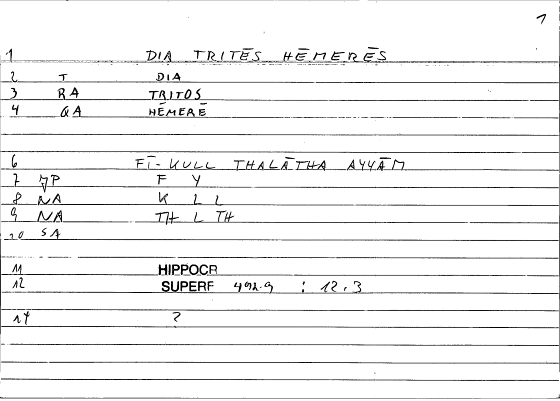 1
1 DIA TRITĒS HĒMERĒS
2 T DIA
3 RA TRITOS
4 QA HĒMERĒ
6 FĪ-KULL THALĀTHA AYYĀM
7 F Y
8 NA K L L
9 NA TH L TH
10 SA
11 HIPPOCR
12 SUPERF 492.9 : 12.3
14 ?